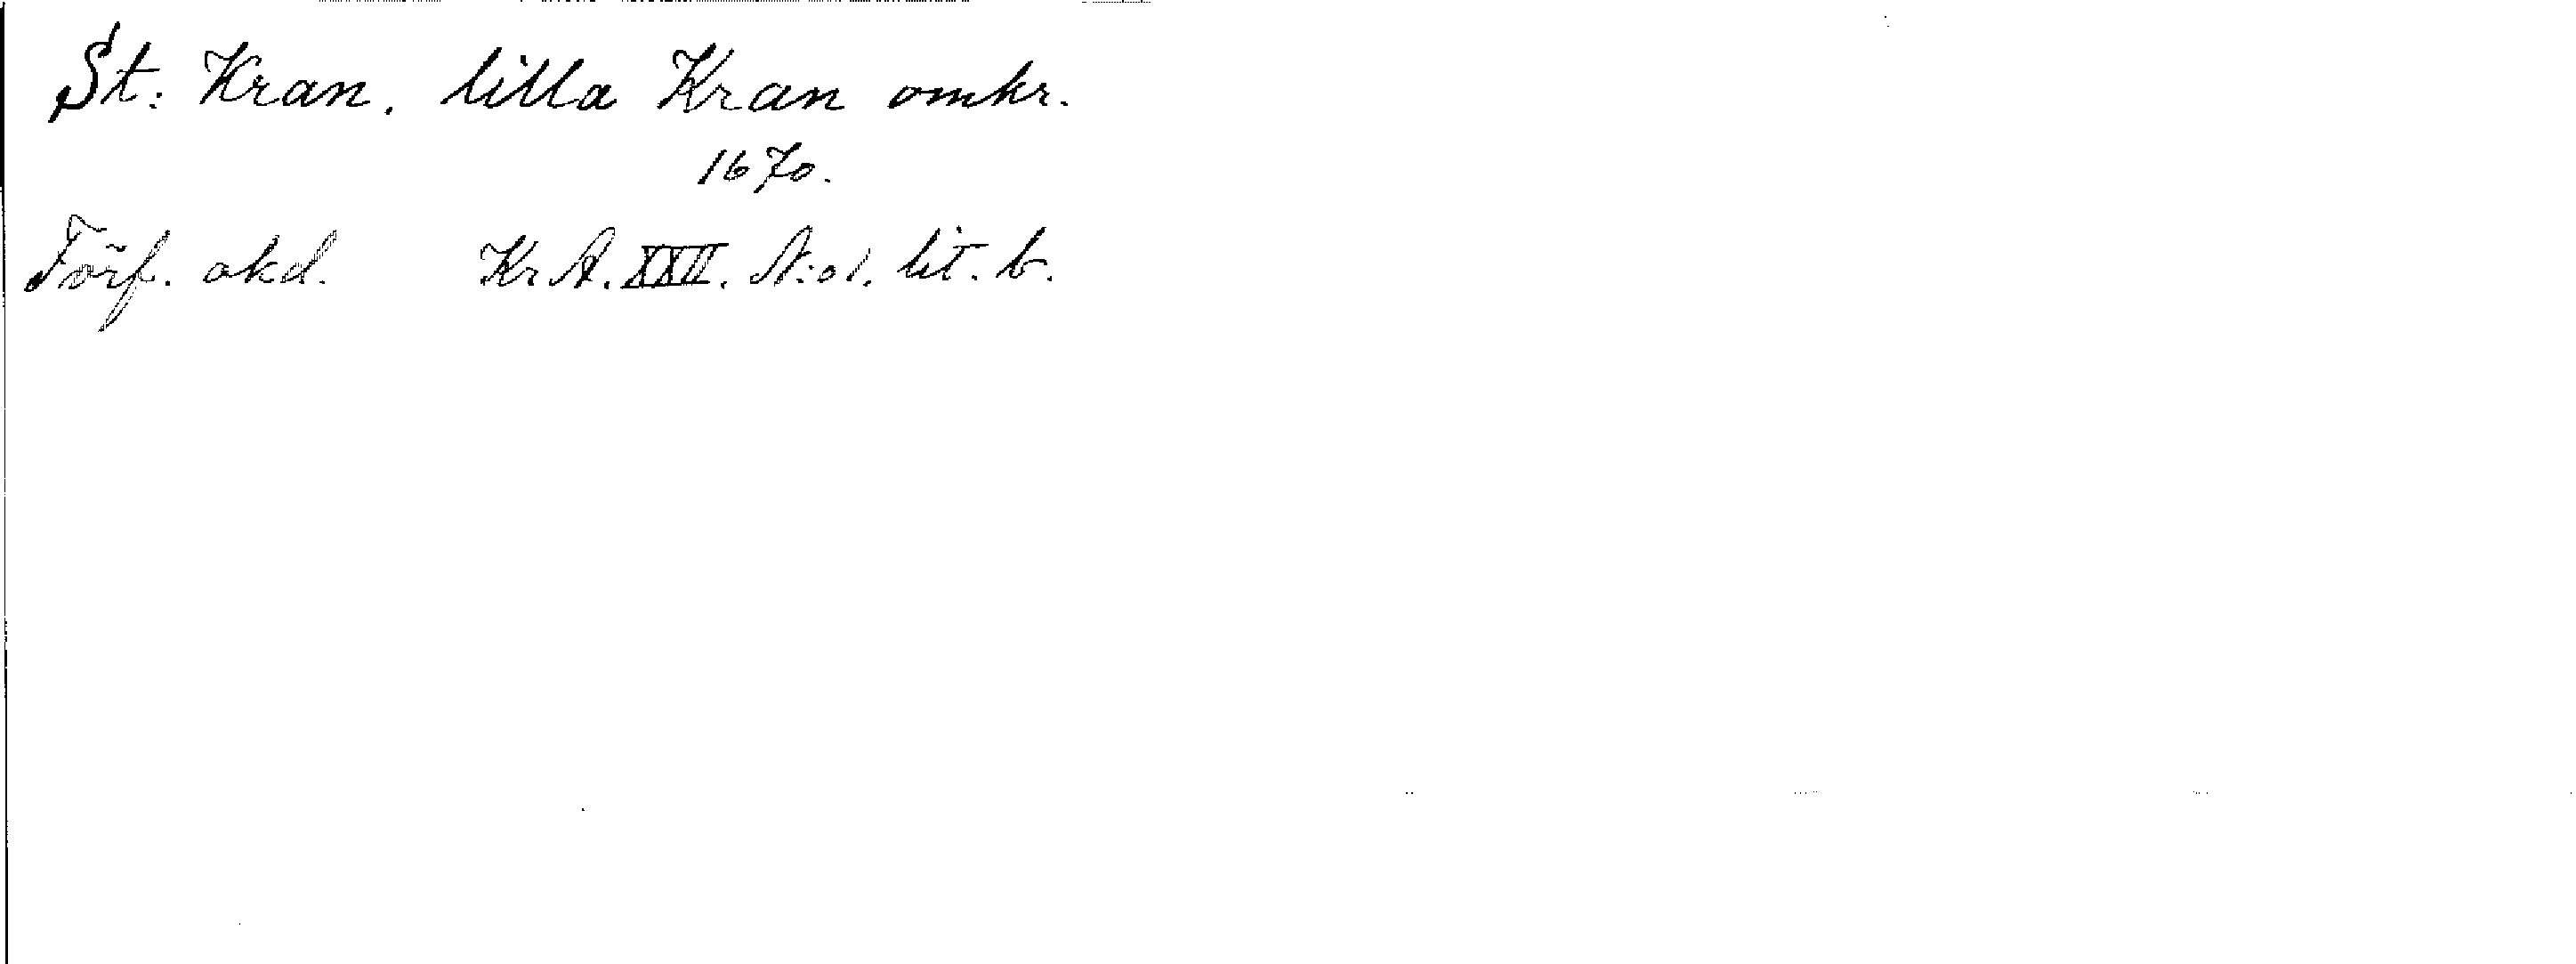 St: Kran. lilla Kran omkr.
1670.
Förf. okd. Kr A. XXII. N:o 1. lit. b.